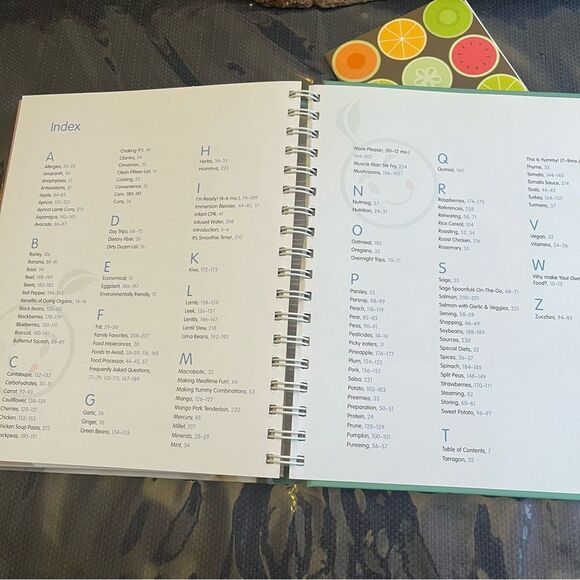 Index
A
Allergies, 20-22
Amaranth, 161
Anaphylaxis, 21
Antioxidants, 31
Apple, 84-85
Apricot, 122-123
Apricot Lamb Curry, 213
Asparagus, 142-143
Avocado, 86-87
B
Barley, 106
Banana, 80-81
Basil, 34
Beef, 198-199
Beets, 182-183
Bell Pepper, 194-195
Benefits of Going Organic, 14-16
Black Beans, 150-151
Blackberries, 178-179
Blueberries, 130-131
Broccoli, 140-141
Butternut Squash, 88-89
C
Cantaloupe, 132-133
Carbohydrates, 30-31
Carrot, 92-93
Cauliflower, 138-139
Cherries, 120-121
Chicken, 152-153
Chicken Soup Pasta, 212
Chickpeas, 190-191
Choking
Cilantro, 34
Cinnamon, 36
Clean Fifteen List, 16
Cooking, 52
Convenience, 12
Corn, 180-181
Curry, 36
D
Day Trips, 68-70
Dietary Fiber, 30
Dirty Dozen List, 16
E
Economical, 10
Eggplant, 186-187
Environmentally friendly, 12
F
Fat, 29-30
Family Favorites, 208-227
Food Intolerances, 20
Foods to Avoid, 38-39, 116, 168
Food Processor, 44-45, 57
Frequently Asked Questions,
77-79, 113-115, 167-169
G
Garlic, 36
Ginger, 36
Green Beans, 134-135
H
Herbs, 33-35
Hummus, 222
I
I'm Ready! (4-6 mo.), 74-109
Immersion Blender, 44-45, 57
Infant CPR, 41
Infused Water, 208
Introduction, 5-6
It's Smoothie Time!, 210
K
Kiwi, 172-173
L
Lamb, 158-159
Leek, 136-137
Lentils, 146-147
Lentil Stew, 218
Lima Beans, 192-193
M
Macrobiotic, 32
Making Mealtime Fun!, 66
Making Yummy Combinations, 63
Mango, 126-127
Mango Pork Tenderloin, 220
Mercury, 48
Millet, 107
Minerals, 28-29
Mint, 34
More Please!, (10-12 mo.)
164-207
Muscle Man Stir Fry, 224
Mushrooms, 196-197
N
Nutmeg, 37
Nutrition, 24-31
O
Oatmeal, 105
Oregano, 35
Overnight Trips, 70-71
P
Parsley, 35
Parsnip, 98-99
Peach, 118-119
Pear, 82-83
Peas, 90-91
Pesticides, 14-16
Picky eaters, 11
Pineapple, 176-177
Plum, 124-125
Pork, 156-157
Salsa, 221
Potato, 102-103
Preemies, 33
Preparation, 50-51
Protein, 29
Prune, 128-129
Pumpkin, 100-101
Pureeing, 56-57
Q
Quinoa, 160
R
Raspberries, 174-175
References, 228
Reheating, 58, 71
Rice Cereal, 104
Roasting, 52, 54
Roast Chicken, 216
Rosemary, 35
S
Sage, 35
Sage Spoonfuls On-The-Go, 68-71
Salmon, 200-201
Salmon with Garlic & Veggies, 221
Serving, 58-59
Shopping, 46-49
Soybeans, 188-189
Sources, 230
Special Diets, 32
Spices, 36-37
Spinach, 184-185
Split Peas, 148-149
Strawberries, 170-171
Steaming, 52
Storing, 60-61
Sweet Potato, 96-97
T
Table of Contents, 7
Tarragon, 35
This is Yummy! (7-9mo.)
Thyme, 35
Tomato, 144-145
Tomato Sauce, 214
Tools, 44-45
Turkey, 154-155
Turmeric, 37
V
Vegan, 32
Vitamins, 24-26
W
Why make your Own
Food?, 10-13
Z
Zucchini, 94-95